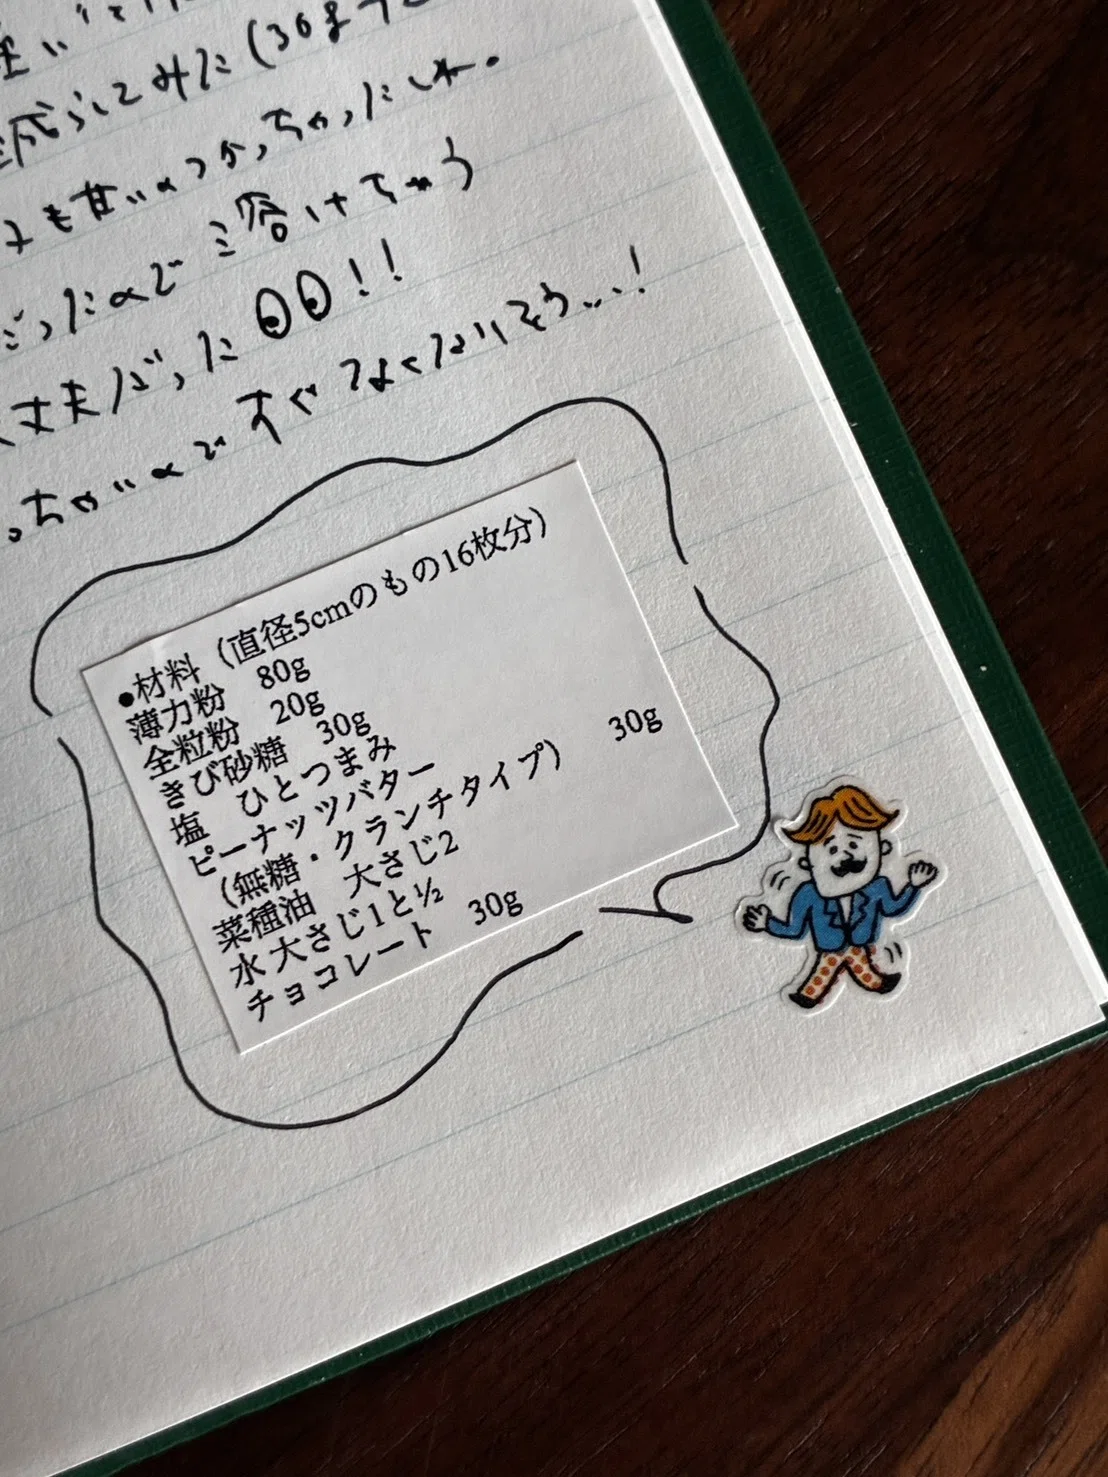 減らしてみた(30まで
も甘いのつかっちゃったしね.
だったので溶けちゃう
丈夫だった!!
っちゃいので すぐなくなりそう...!
●材料（直径5cmのもの16枚分）
薄力粉 80g
全粒粉 20g
きび砂糖 30g
塩 ひとつまみ
ピーナッツバター
（無糖・クランチタイプ） 30g
菜種油 大さじ2
水 大さじ1と½
チョコレート 30g